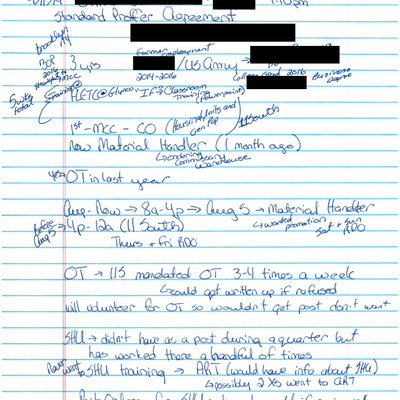 Standard Proffer Agreement
Brooklyn
NY
BOP 3 yrs
Former employment
/US Army →
2014-2016
College grad 2016 Business
degree
Training @
FLETC @ Glynco, IF → Classroom
Training (powerpoint)
5 wks
total
1st - MCC - CO (Housing Units and
Gen Pop
11 South
Now Material Handler (1 month ago)
↳ ordering
commissary
warehouse
OT in last year
Aug - Now → 8a-4p → Aug 5 → Material Handler
↳ wanted promotion Sat + Sun
RDO
before
Aug 5 → 4p-12a (11 South)
Thurs + Fri RDO
OT → 115 mandated OT 3-4 times a week
↳ could get written up if refused
will volunteer for OT so wouldn't get post don't want
SHU → didn't have as a post during a quarter but
has worked there a handful of times
Never
went
to SHU training → ART (would have info about SHU)
↳ possibly 2 Xs went to ART